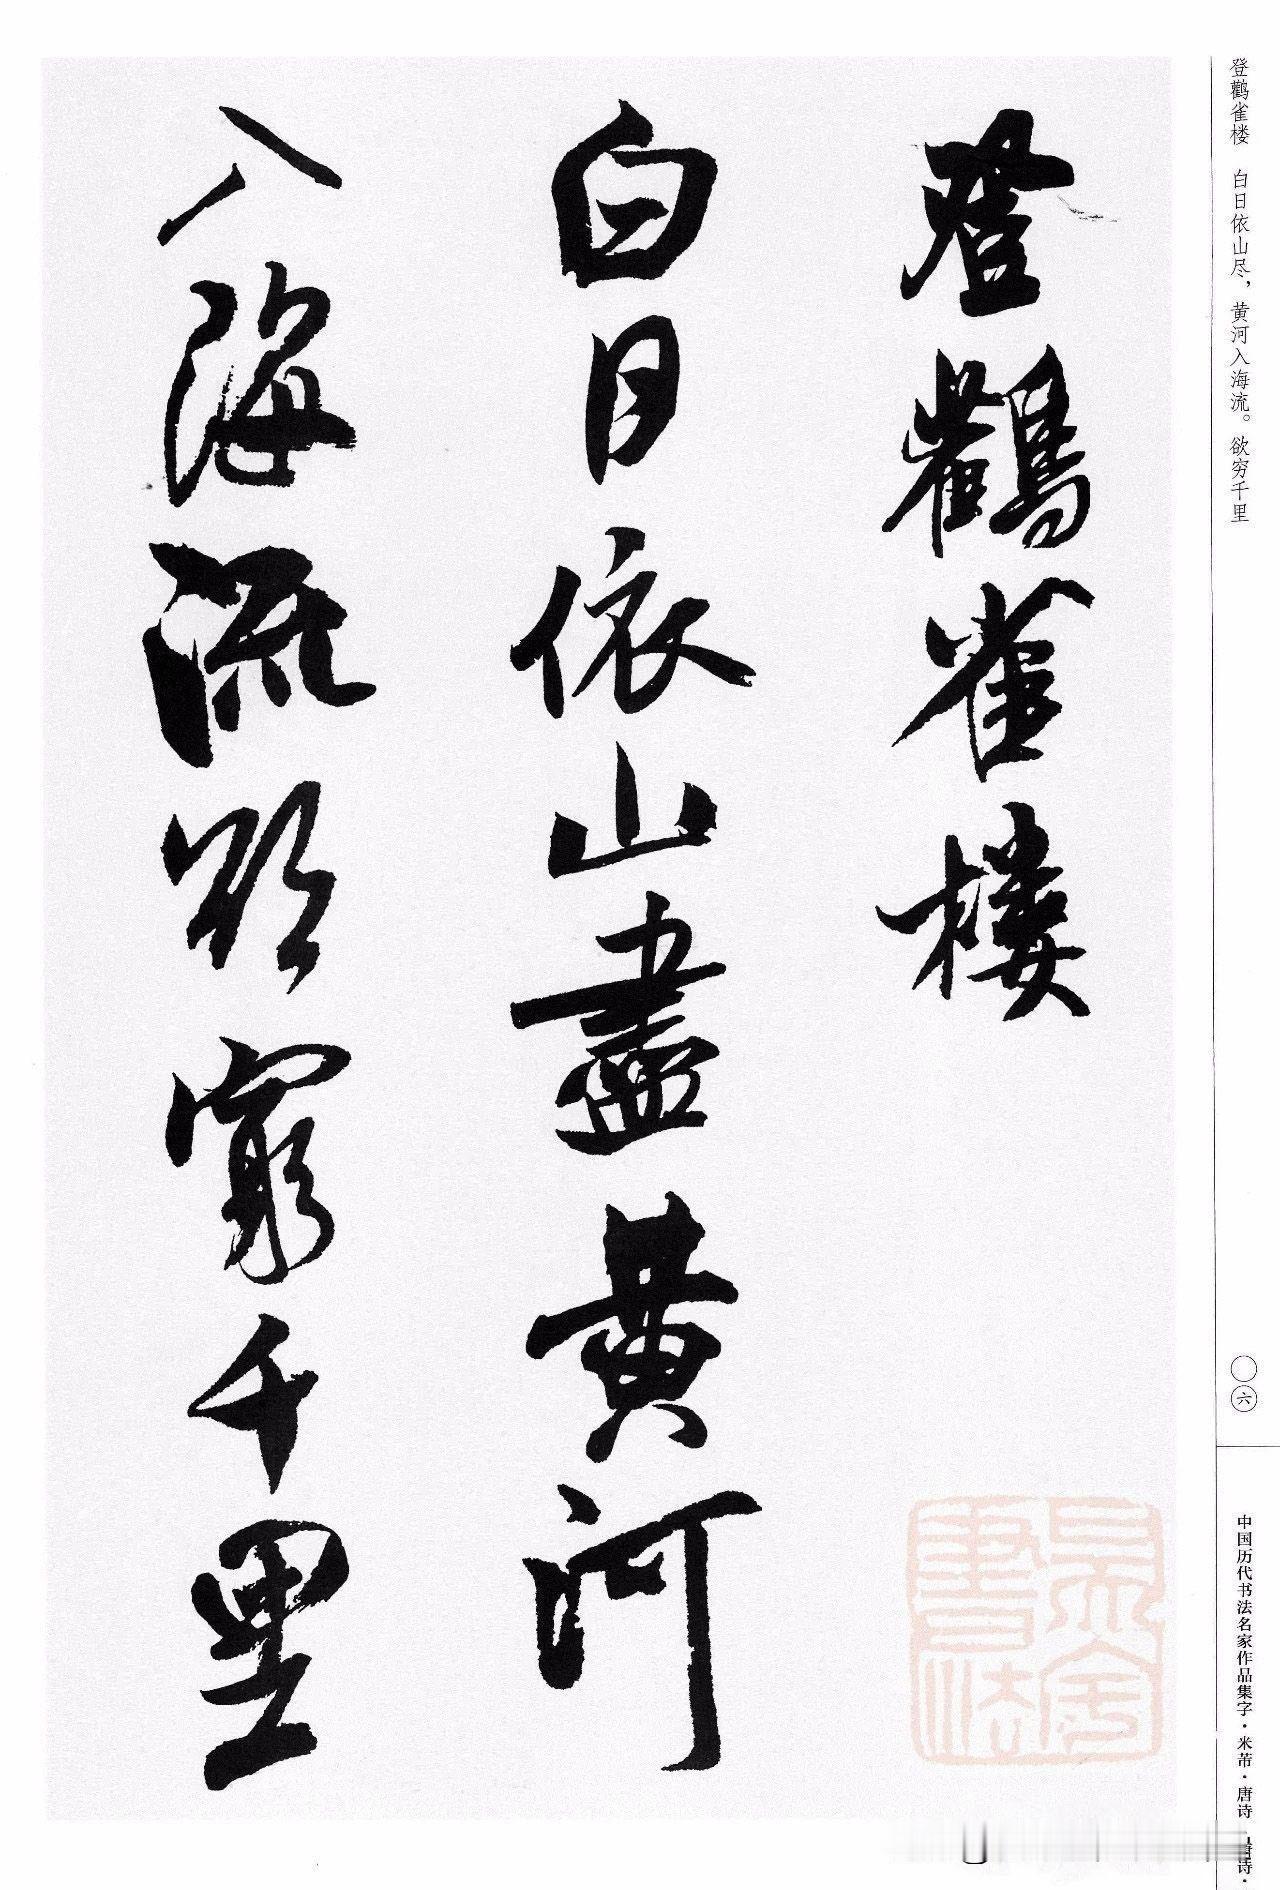 登鸛雀樓
白日依山盡黄河
入海流欲窮千里
登鹳雀楼 白日依山尽，黄河入海流。欲穷千里
〇六
中国历代书法名家作品集字·米芾·唐诗·
唐诗·